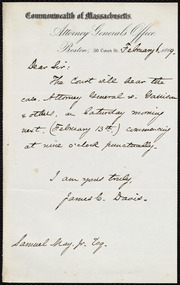 Commonwealth of Massachusetts.
Attorney General's Office,
Boston, 30 Court St. February 1869.
Dear Sir:
The Court will hear the
case, Attorney General v. Garrison
& others, on Saturday morning
next, (February 13th) commencing
at nine o'clock punctually.
I am yours truly,
James C. Davis.
Samuel May, Jr. Esq.